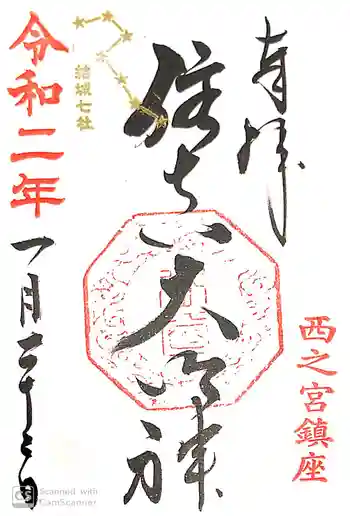 奉拝
西之宮鎮座
住吉大御神
結城七社
令和二年
一月二十三日
CS
Scanned with
CamScanner